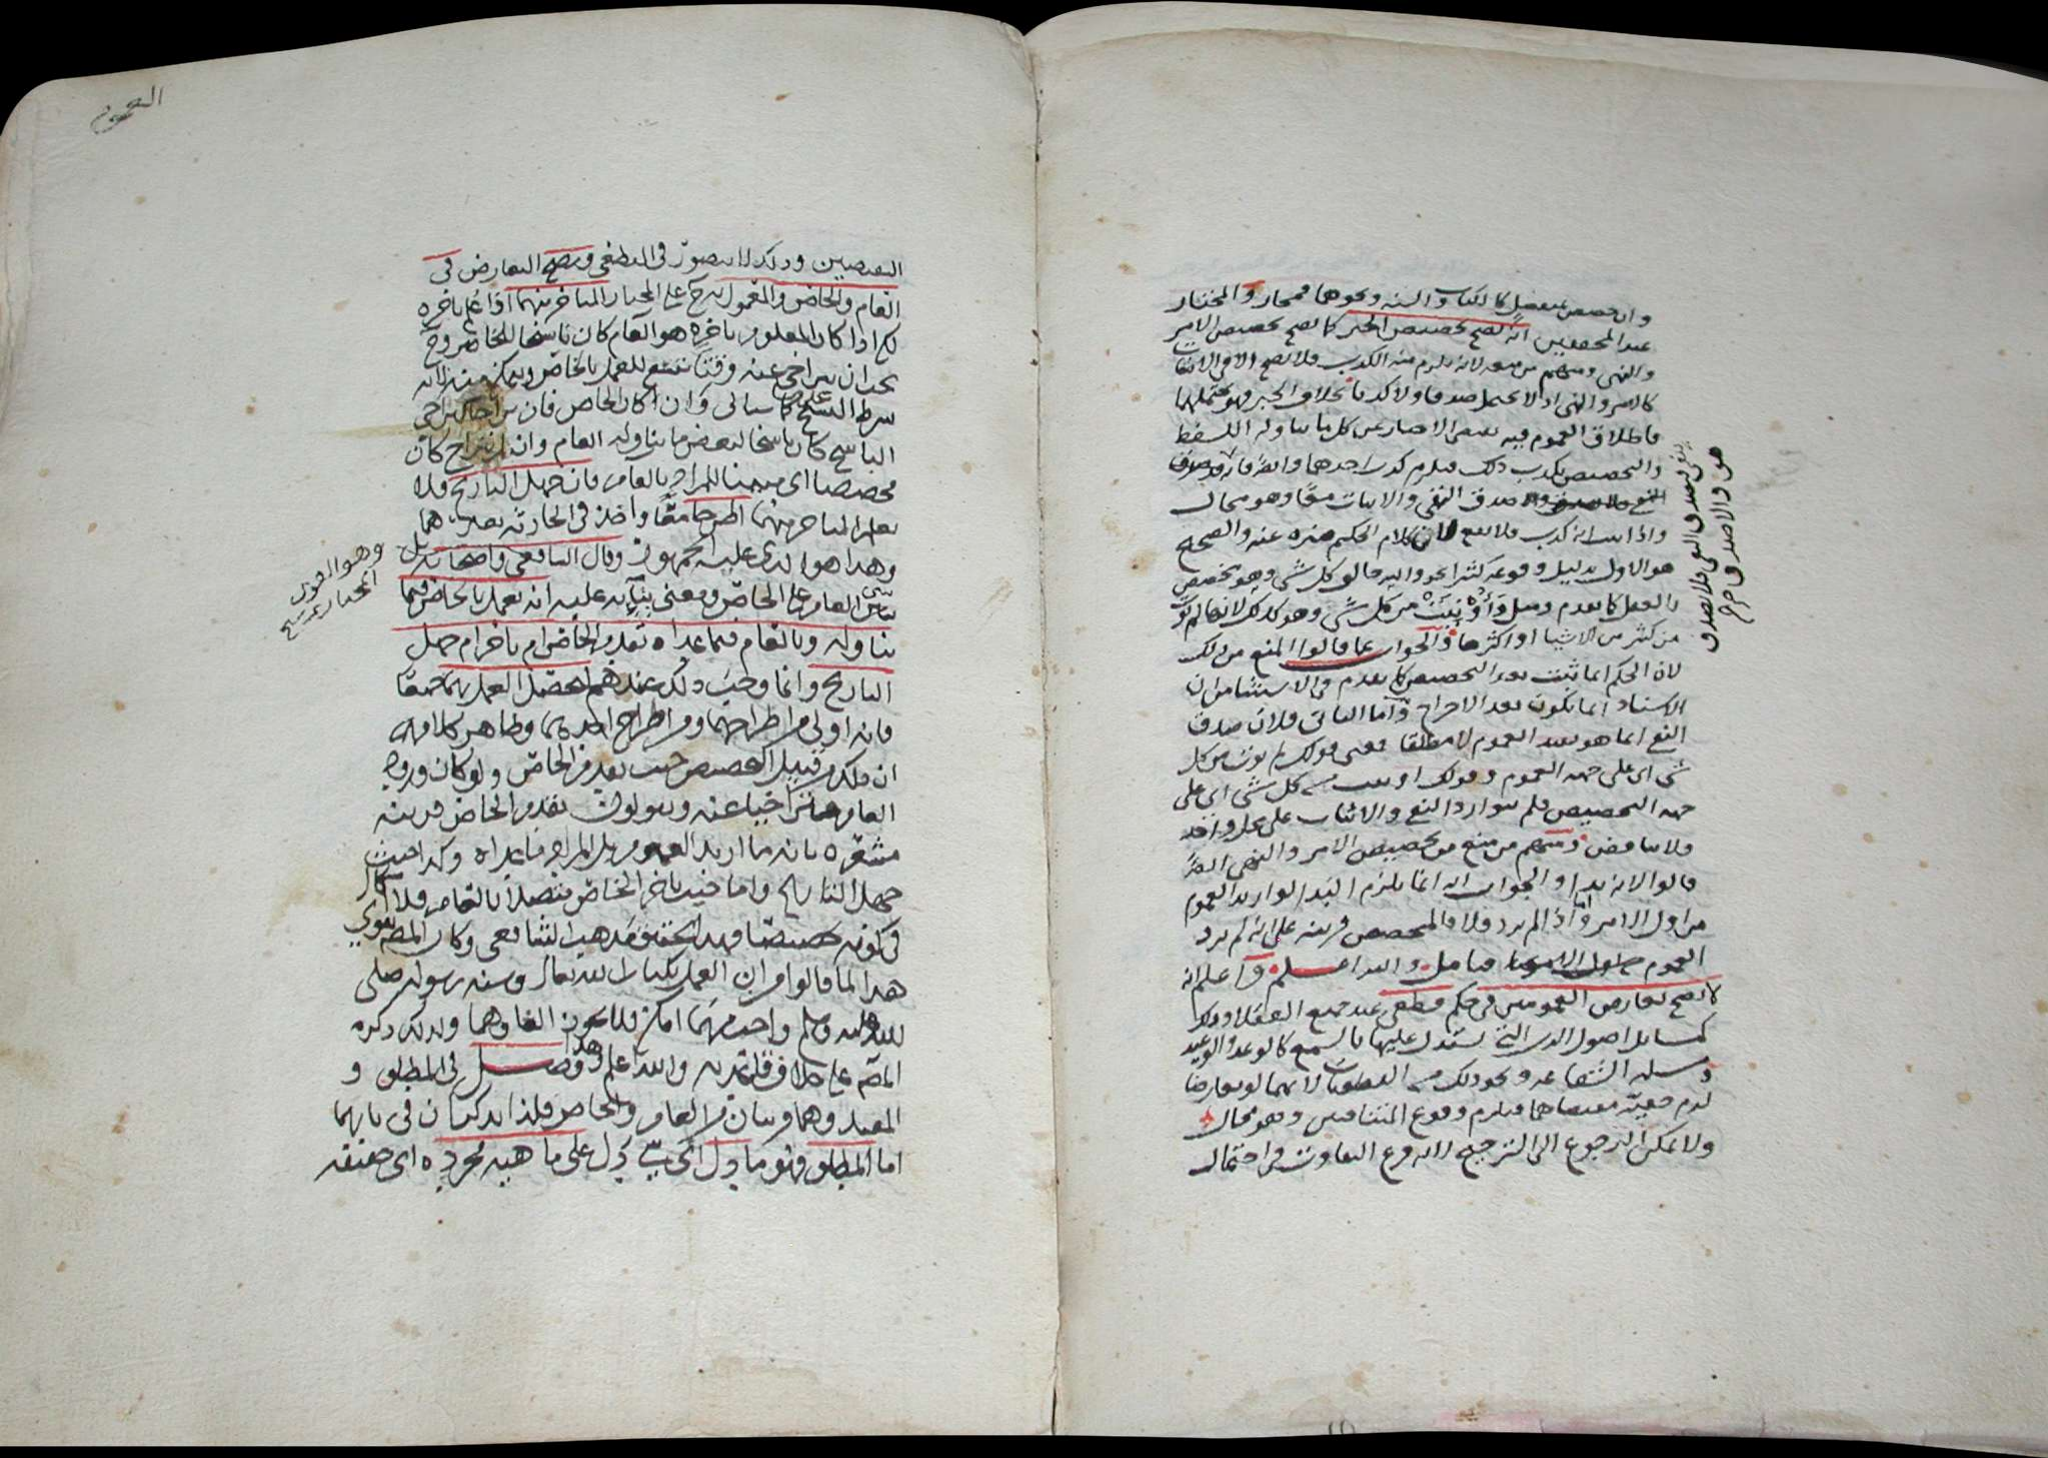 وان خصص بمنفصل كالكتاب والسنه ونحوهما فمجاز والمختار
عند المحققين انه يصح تخصيص الخبر كما يصح تخصيص الامر
والنهي ومنهم من منعه لانه يلزم منه الكذب فلا يصح الا في الانشاات
كالامر والنهي اذ لا يحتمل صدقا ولا كذبا بخلاف الخبر فهو يحتملهما
فاطلاق العموم فيه يقتضي الاخبار عن كل ما يتناوله اللفظ
والتخصيص يكذب ذلك فيلزم كذب احدهما والا
صدق النفي والاثبات معًا وهو محال
واذا ثبت انه كذب فلا يقع لان كلام الحكيم منزه عنه والصحيح
هو الاول بدليل وقوعه كثيرا نحو والله خالق كل شي وهو مخصص
بالعقل كما تقدم ومثل وَأُوْتِيَتْ من كل شي وهو كذلك لانها لم تؤت
من كثير من الاشيا او اكثرها والجواب عما قالوا المنع من ذلك
لان الحكم انما ثبت بعد التخصيص كما تقدم في الاستثنا من ان
الاسناد انما يكون بعد الاخراج واما الثاني فلان صدق
النفي انما هو بقيد العموم لا مطلقا فمعنى قولك لم تؤت من كل
شي اي على جهه العموم وقولك اوتيت من كل شي اي على
جهه التخصيص فلم يتوارد النفي والاثبات على محل واحد
فلا تناقض ومنهم من منع من تخصيص الامر والنهي ايضا
قالوا لانه بدا والجواب انه انما يلزم البَدا لو اريد العموم
من اول الامر اما اذا لم يرد فلا والمخصص قرينه على انه لم يرد
العموم من اول الامر فتامل والله اعلم واعلم انه
لا يصح تعارض العمومين في حكم قطعي عند جميع العقلا وذلك
كمسائل اصول الدين التي يستدل عليها بالسمع كالوعد والوعيد
ومسله الشفاعه ونحو ذلك من القطعيات لانهما لو تعارضا
لزم حقيّة مقتضاهما فيلزم وقوع المتنافيين وهو محال
ولا يمكن الرجوع الى الترجيح لانه فرع التفاوت في احتمال
العموم
النقيضين وذلك لا يتصوّر في القطعي ويصح التعارض في
العام والخاص والمعمول به على المختار المتاخر منهما اذا علم تاخره
لكن اذا كان المعلوم تاخره هو العام كان ناسخا للخاص
بعد ان يتراخى عنه وقتًا يتسع للعمل بالخاص ويمكن فيه لانه
شرط النسخ على ما سياتي وان كان الخاص فان تراخا كتراخي
الناسخ كان ناسخا لبعض ما يتناوله العام وان لم يتراخ كان
مخصصا اي مبينا للمراد بالعام فان جهل التاريخ فلا
يعلم المتاخر منهما اطرحا معًا واخذ في الحادثه بغيرهما
وهذا هو الذي عليه الجمهور وقال الشافعي واصحابه بل
يبنى العام على الخاص ومعنى بنائه عليه انه يعمل بالخاص فيما
تناوله وبالعام فيما عداه تقدم الخاص ام تاخر ام جهل
التاريخ وانما وجب ذلك عندهم ليحصّل العمل بهما جميعًا
فانه اولى من اطراحهما ومن اطراح احدهما وظاهر كلامهم
ان ذلك من قبيل التخصيص حيث يتقدم الخاص ولو كان ورود
العام متراخيا عنه ويقولون تقدم الخاص قرينه
مشعره بانه ما اريد العموم بل المراد ما عداه وكذا حيث
جهل التاريخ واما حيث تاخر الخاص متصلا بالعام فلا اشكال
في كونه تخصيصًا وهذا تحقيق مذهب الشافعي وكان المصه يقوي
هذا لما قالوا من ان العمل بكتاب الله تعالى وسنه رسوله صلى
الله عليه وسلم واجب مهما امكن فلا يجوز الغاوهما ولذلك ذكره
المصه على خلاف قاعدته والله اعلم وهذا فصل في المطلق و
المقيد وهما قريبان من العام والخاص فلذا يذكران في بابهما
اما المطلق فهو ما دل اي شي دل على ماهيه مجرده اي حقيقه